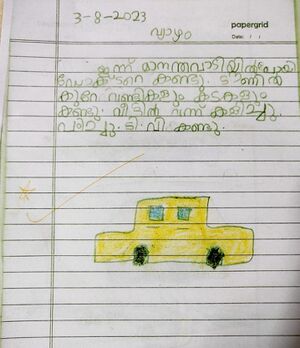 3-8-2023
papergrid
Date: / /
വ്യാഴം
ഇന്ന് മാനന്തവാടിയിൽ പോയി
ഡോക്ടറെ കണ്ടു. ടൗണിൽ
കുറേ വണ്ടികളും കടകളും
കണ്ടു. വീട്ടിൽ വന്ന് കളിച്ചു.
പഠിച്ചു. ടി. വി. കണ്ടു.